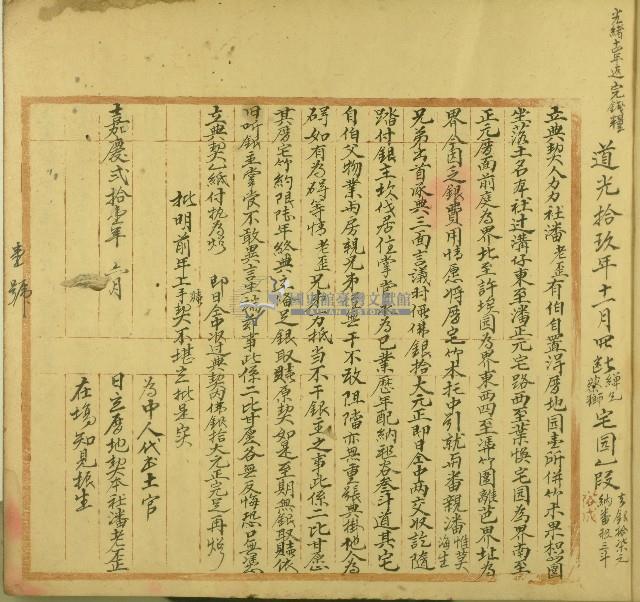 光緒十一年造完錢糧
道光拾玖年十一月四
宅园乙段
立典契人 社潘老歪有伯自置淂厝地园壹所併竹木菓积园
坐落土名在社辻溝仔東至潘正元宅路西至葉愌宅园為界南至
正元厝面前庭為界北至許埈园為界東西四至澫竹圍離芭界址為
界今因乏銀費用情愿將厝宅竹木托中引就与番親潘惟英海生
兄弟出首承典三面言議时價佛銀拾大元正即日仝中両交收訖隨
踏付銀主坎伐居住掌管為己業歷年配納租谷叁斗道其宅
自伯父物業与房親兄弟無干不敢阻擋亦無重張典掛他人為
碍如有為碍等情老歪兄弟力抵当不干銀主之事此係二比甘愿
其厝宅竹約限陸年終典 备足銀取贖原契如是至期無銀取贖依
旧听銀主掌管不敢異言生 事此係二比甘愿各無反悔恐口無憑
立典契乙紙付执為炤
即日仝中收过典契内佛銀拾大元正完足再炤
批明前年上手契不堪立批是实
嘉慶弍拾壹年 六月 日立厝地契本社潘老歪
為中人代书土官
在塲知見振生
壹號
國史館臺灣文獻館